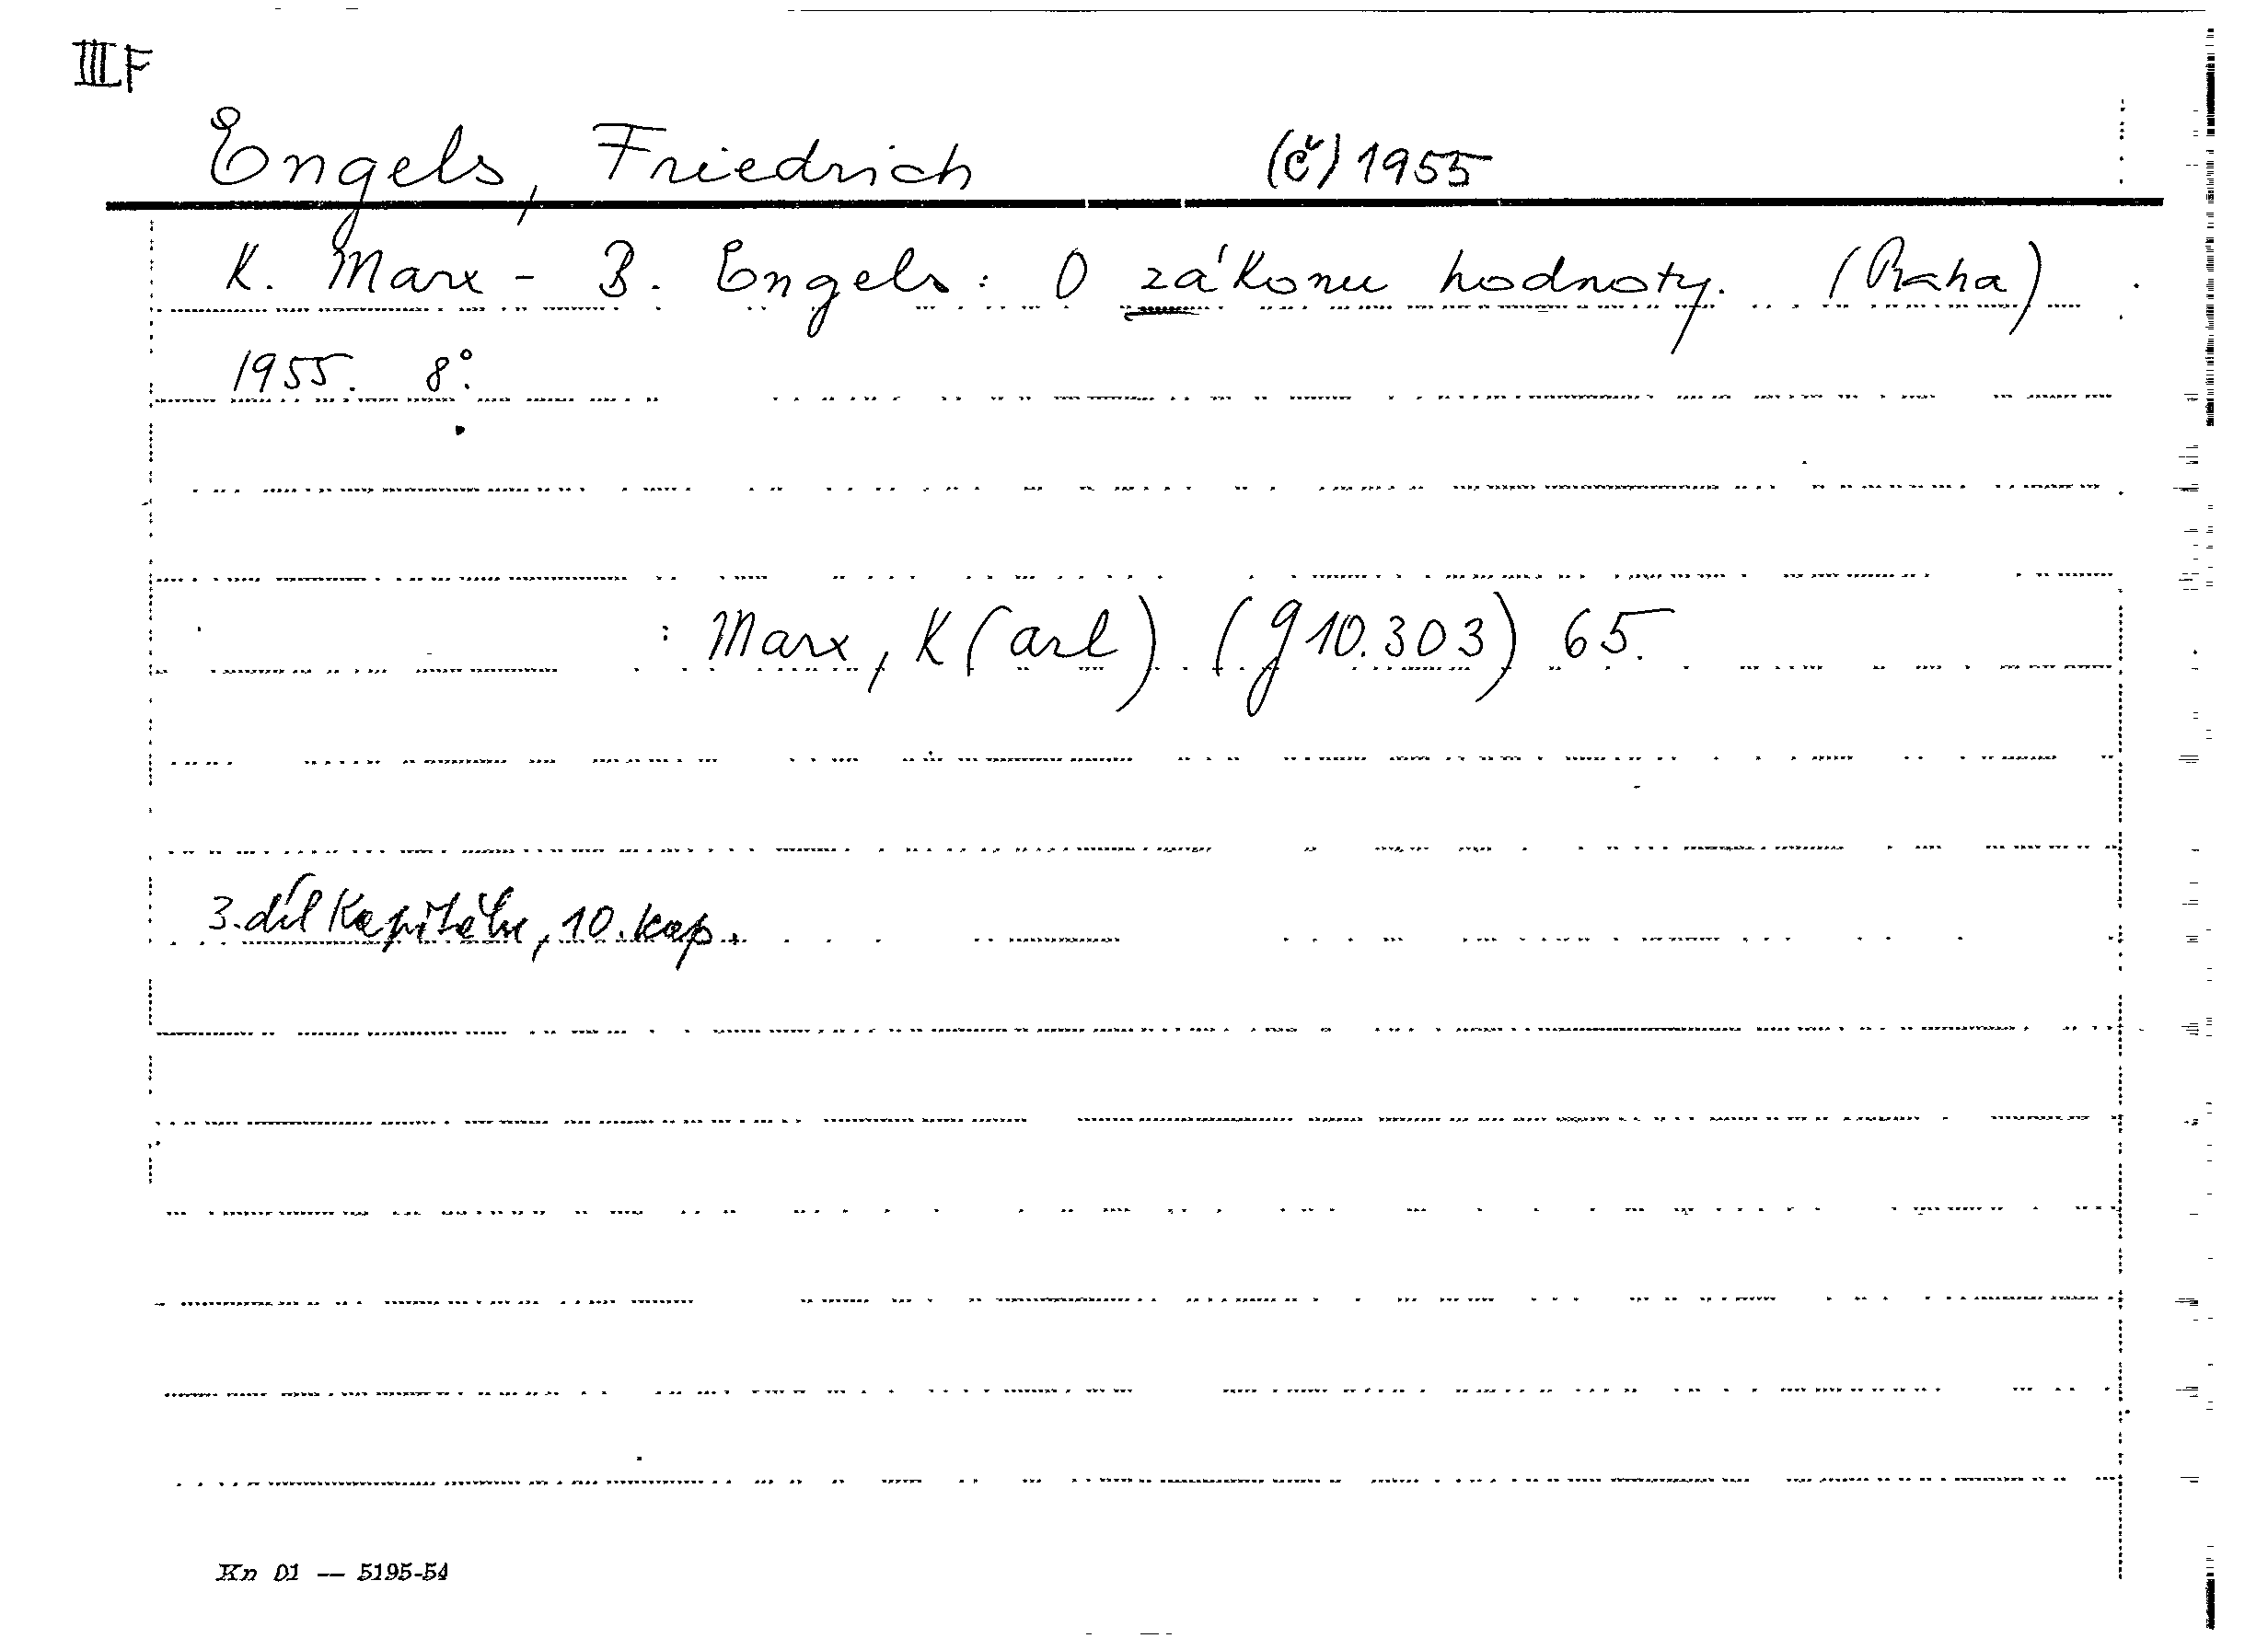 III F
Engels, Friedrich (č) 1955
K. Marx - B. Engels: O zákonu hodnoty. (Praha)
1955. 8°.
: Marx, K(arl) (g 10.303) 65.
3. díl Kapitálu, 10. kap.
Kn 01 — 5195-54